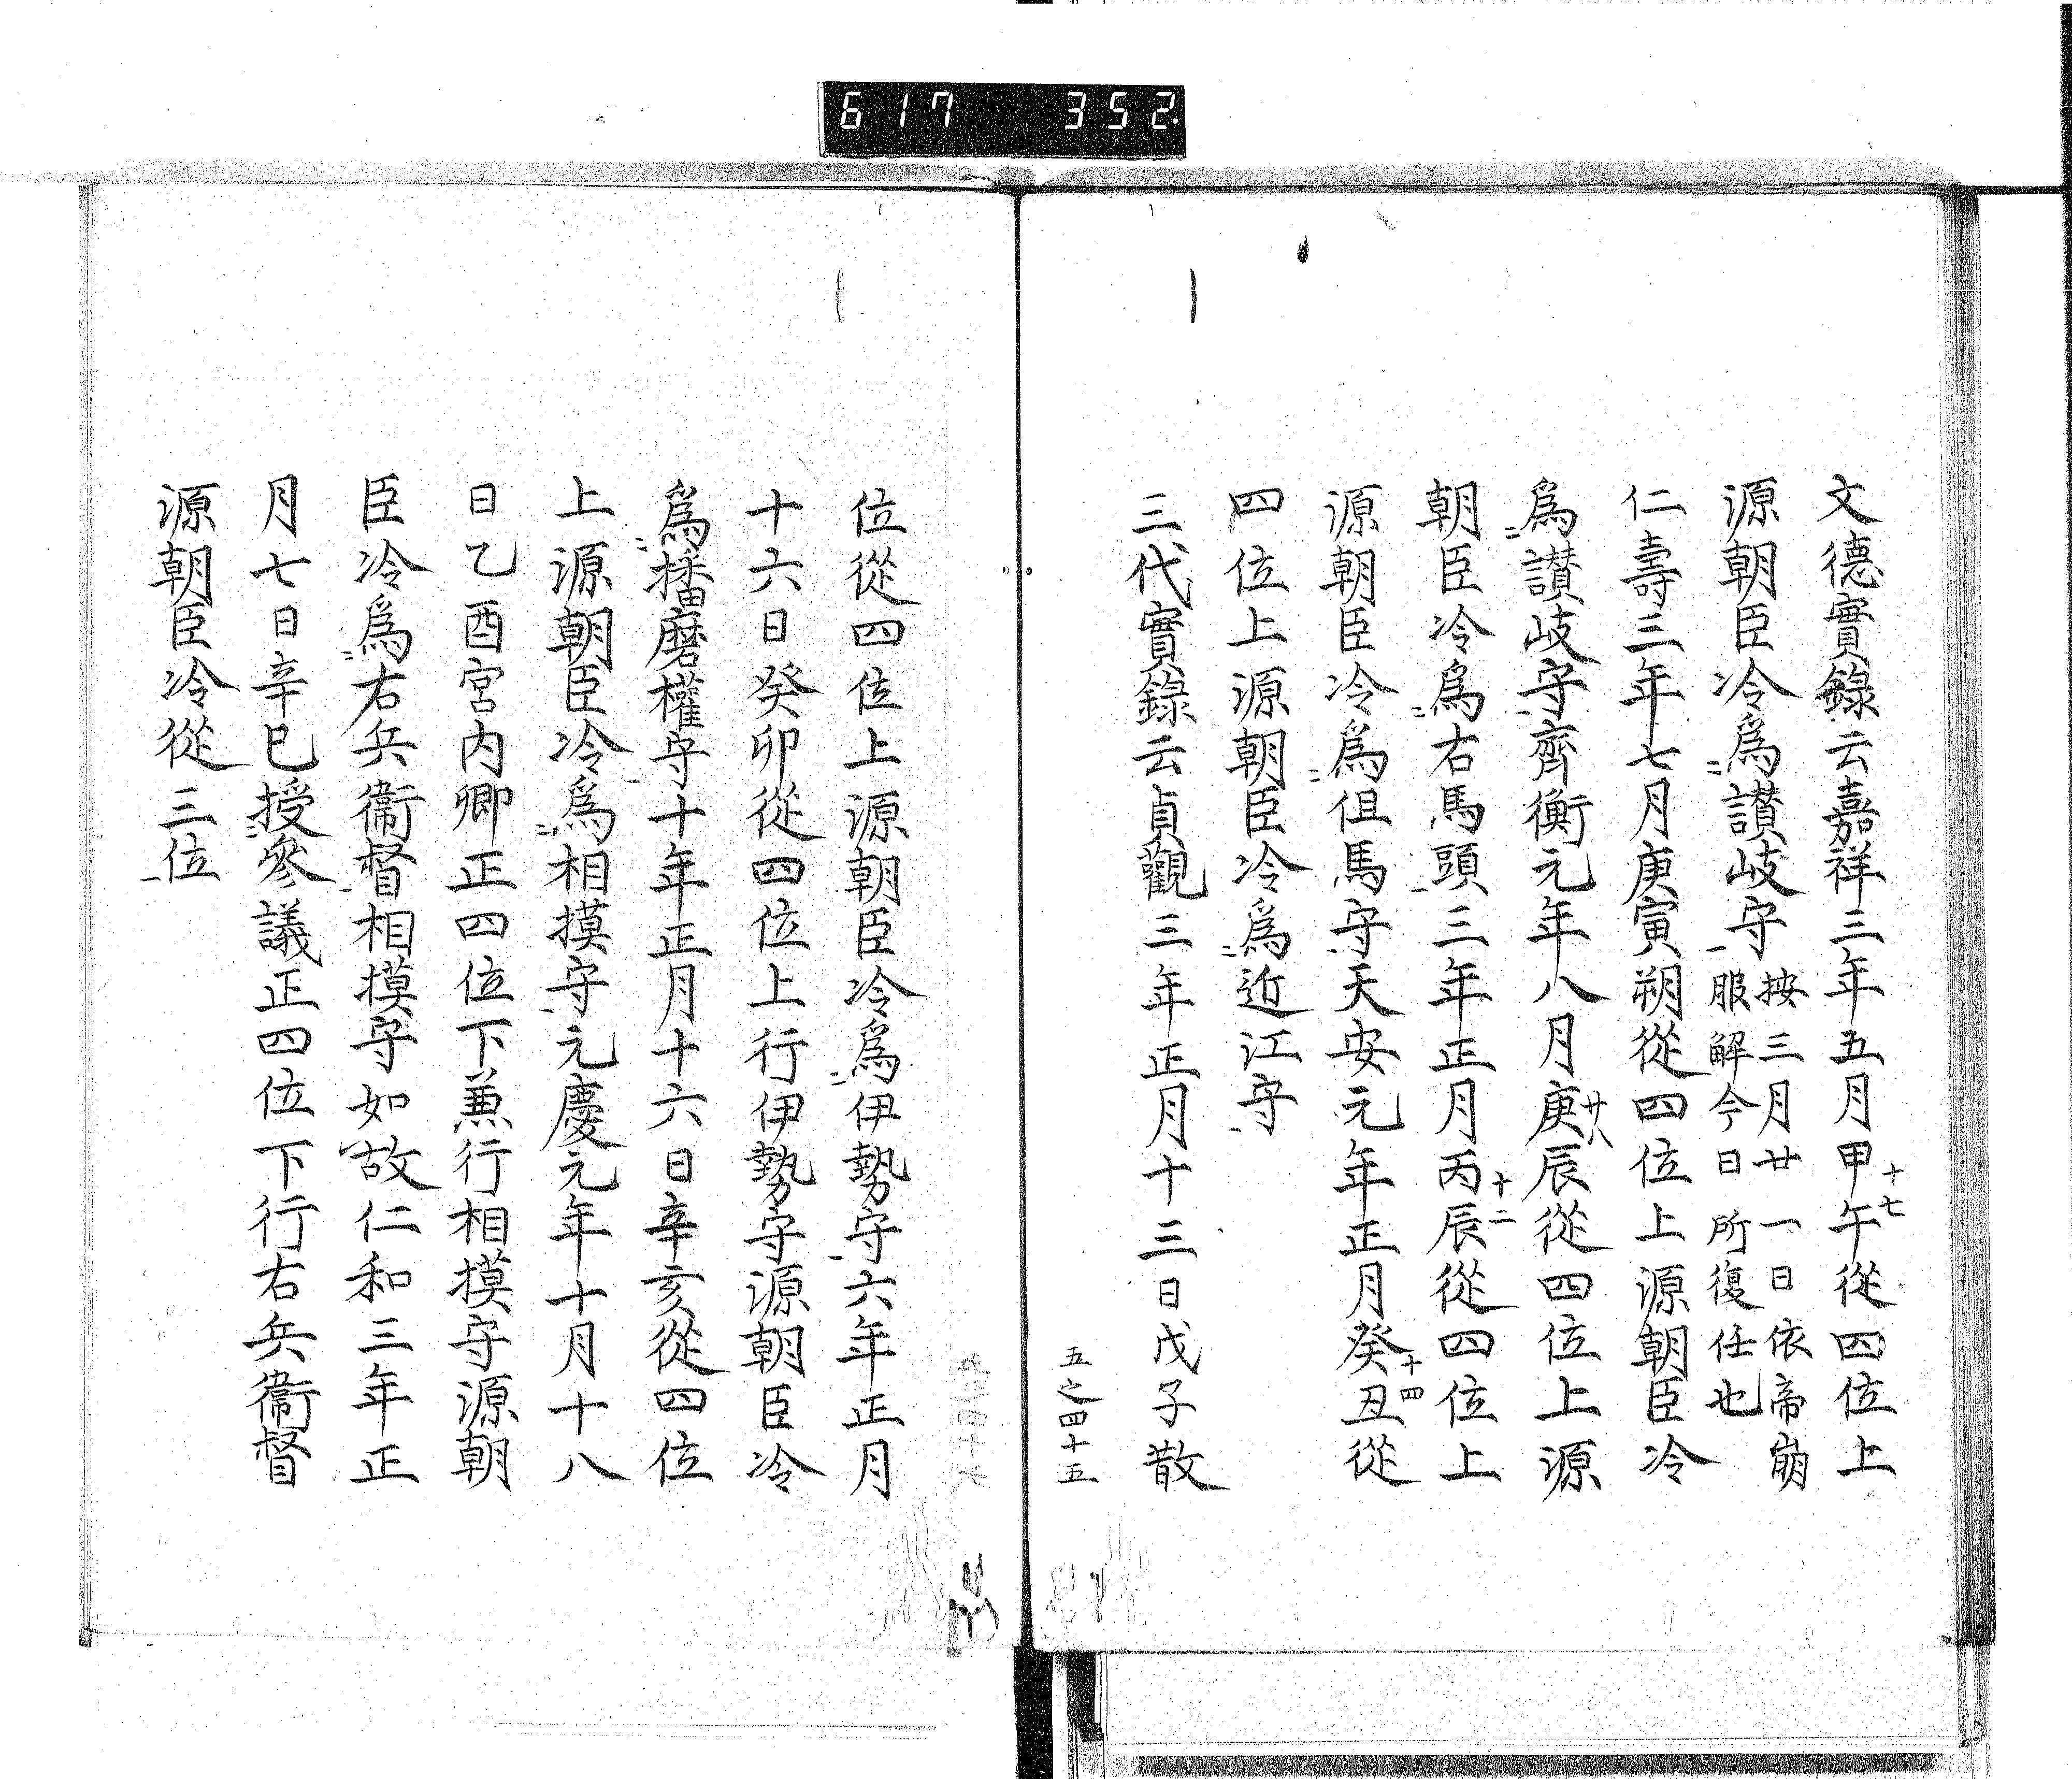 617 352
文德實錄云嘉祥三年五月甲午十七從四位上
源朝臣冷爲讃岐守按三月廿一日依帝崩
服解今日所復任也
仁壽三年七月庚寅朔從四位上源朝臣冷
爲讃岐守齊衡元年八月庚辰廿八從四位上源
朝臣冷爲右馬頭三年正月丙辰十二從四位上
源朝臣冷爲但馬守天安元年正月癸丑十四從
四位上源朝臣冷爲近江守
三代實錄云貞觀三年正月十三日戊子散
五之四十五
位從四位上源朝臣冷爲伊勢守六年正月
十六日癸卯從四位上行伊勢守源朝臣冷
爲播磨權守十年正月十六日辛亥從四位
上源朝臣冷爲相摸守元慶元年十月十八
日乙酉宮内卿正四位下兼行相摸守源朝
臣冷爲右兵衞督相摸守如故仁和三年正
月七日辛巳授參議正四位下行右兵衞督
源朝臣冷從三位